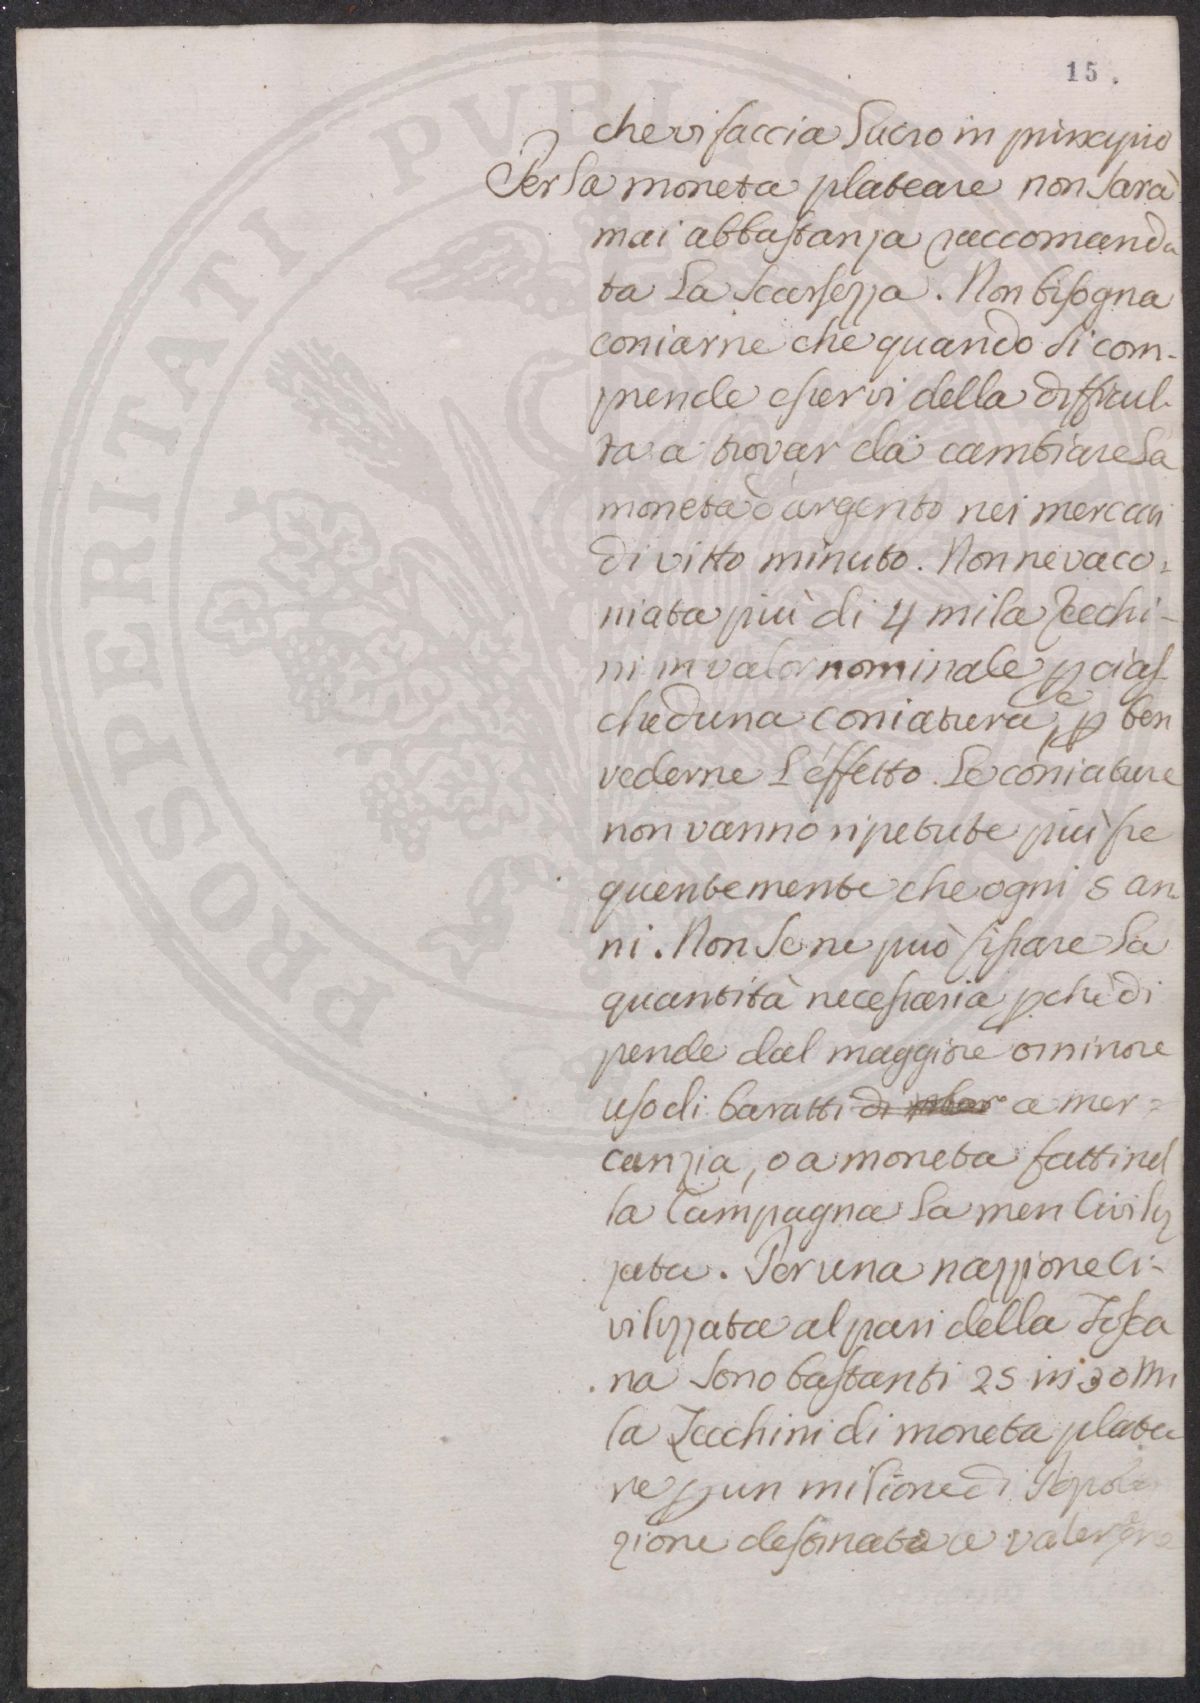 15.
che vi faccia lucro in principio
Per la moneta plateare non sarà
mai abbastanza raccomanda
ta la scarsezza. Non bisogna
coniarne che quando si com-
prende esservi della difficul-
ta a trovar da cambiare la
moneta d'argento nei mercati
di vitto minuto. Non ne va co=
niata più di 4 mila Zecchi-
ni in valor nominale p cias
cheduna coniatura, e p ben
vederne l'effetto. Le coniature
non vanno ripetute più fre
quentemente che ogni 5 an-
ni. Non se ne può fissare la
quantità necessaria pchè di
pende dal maggiore o minore
uso di baratti di a mer=
canzia, o a moneta fatti nel
la Campagna la men Civiliz
zata. Per una nazzione Ci-
vilizzata al pari della Tosca
na sono bastanti 25 in 30 Mi
la Zecchini di moneta platea
re p un milione di Popola
zione destinata a valersene
PROSPERITATI PUBLICAE